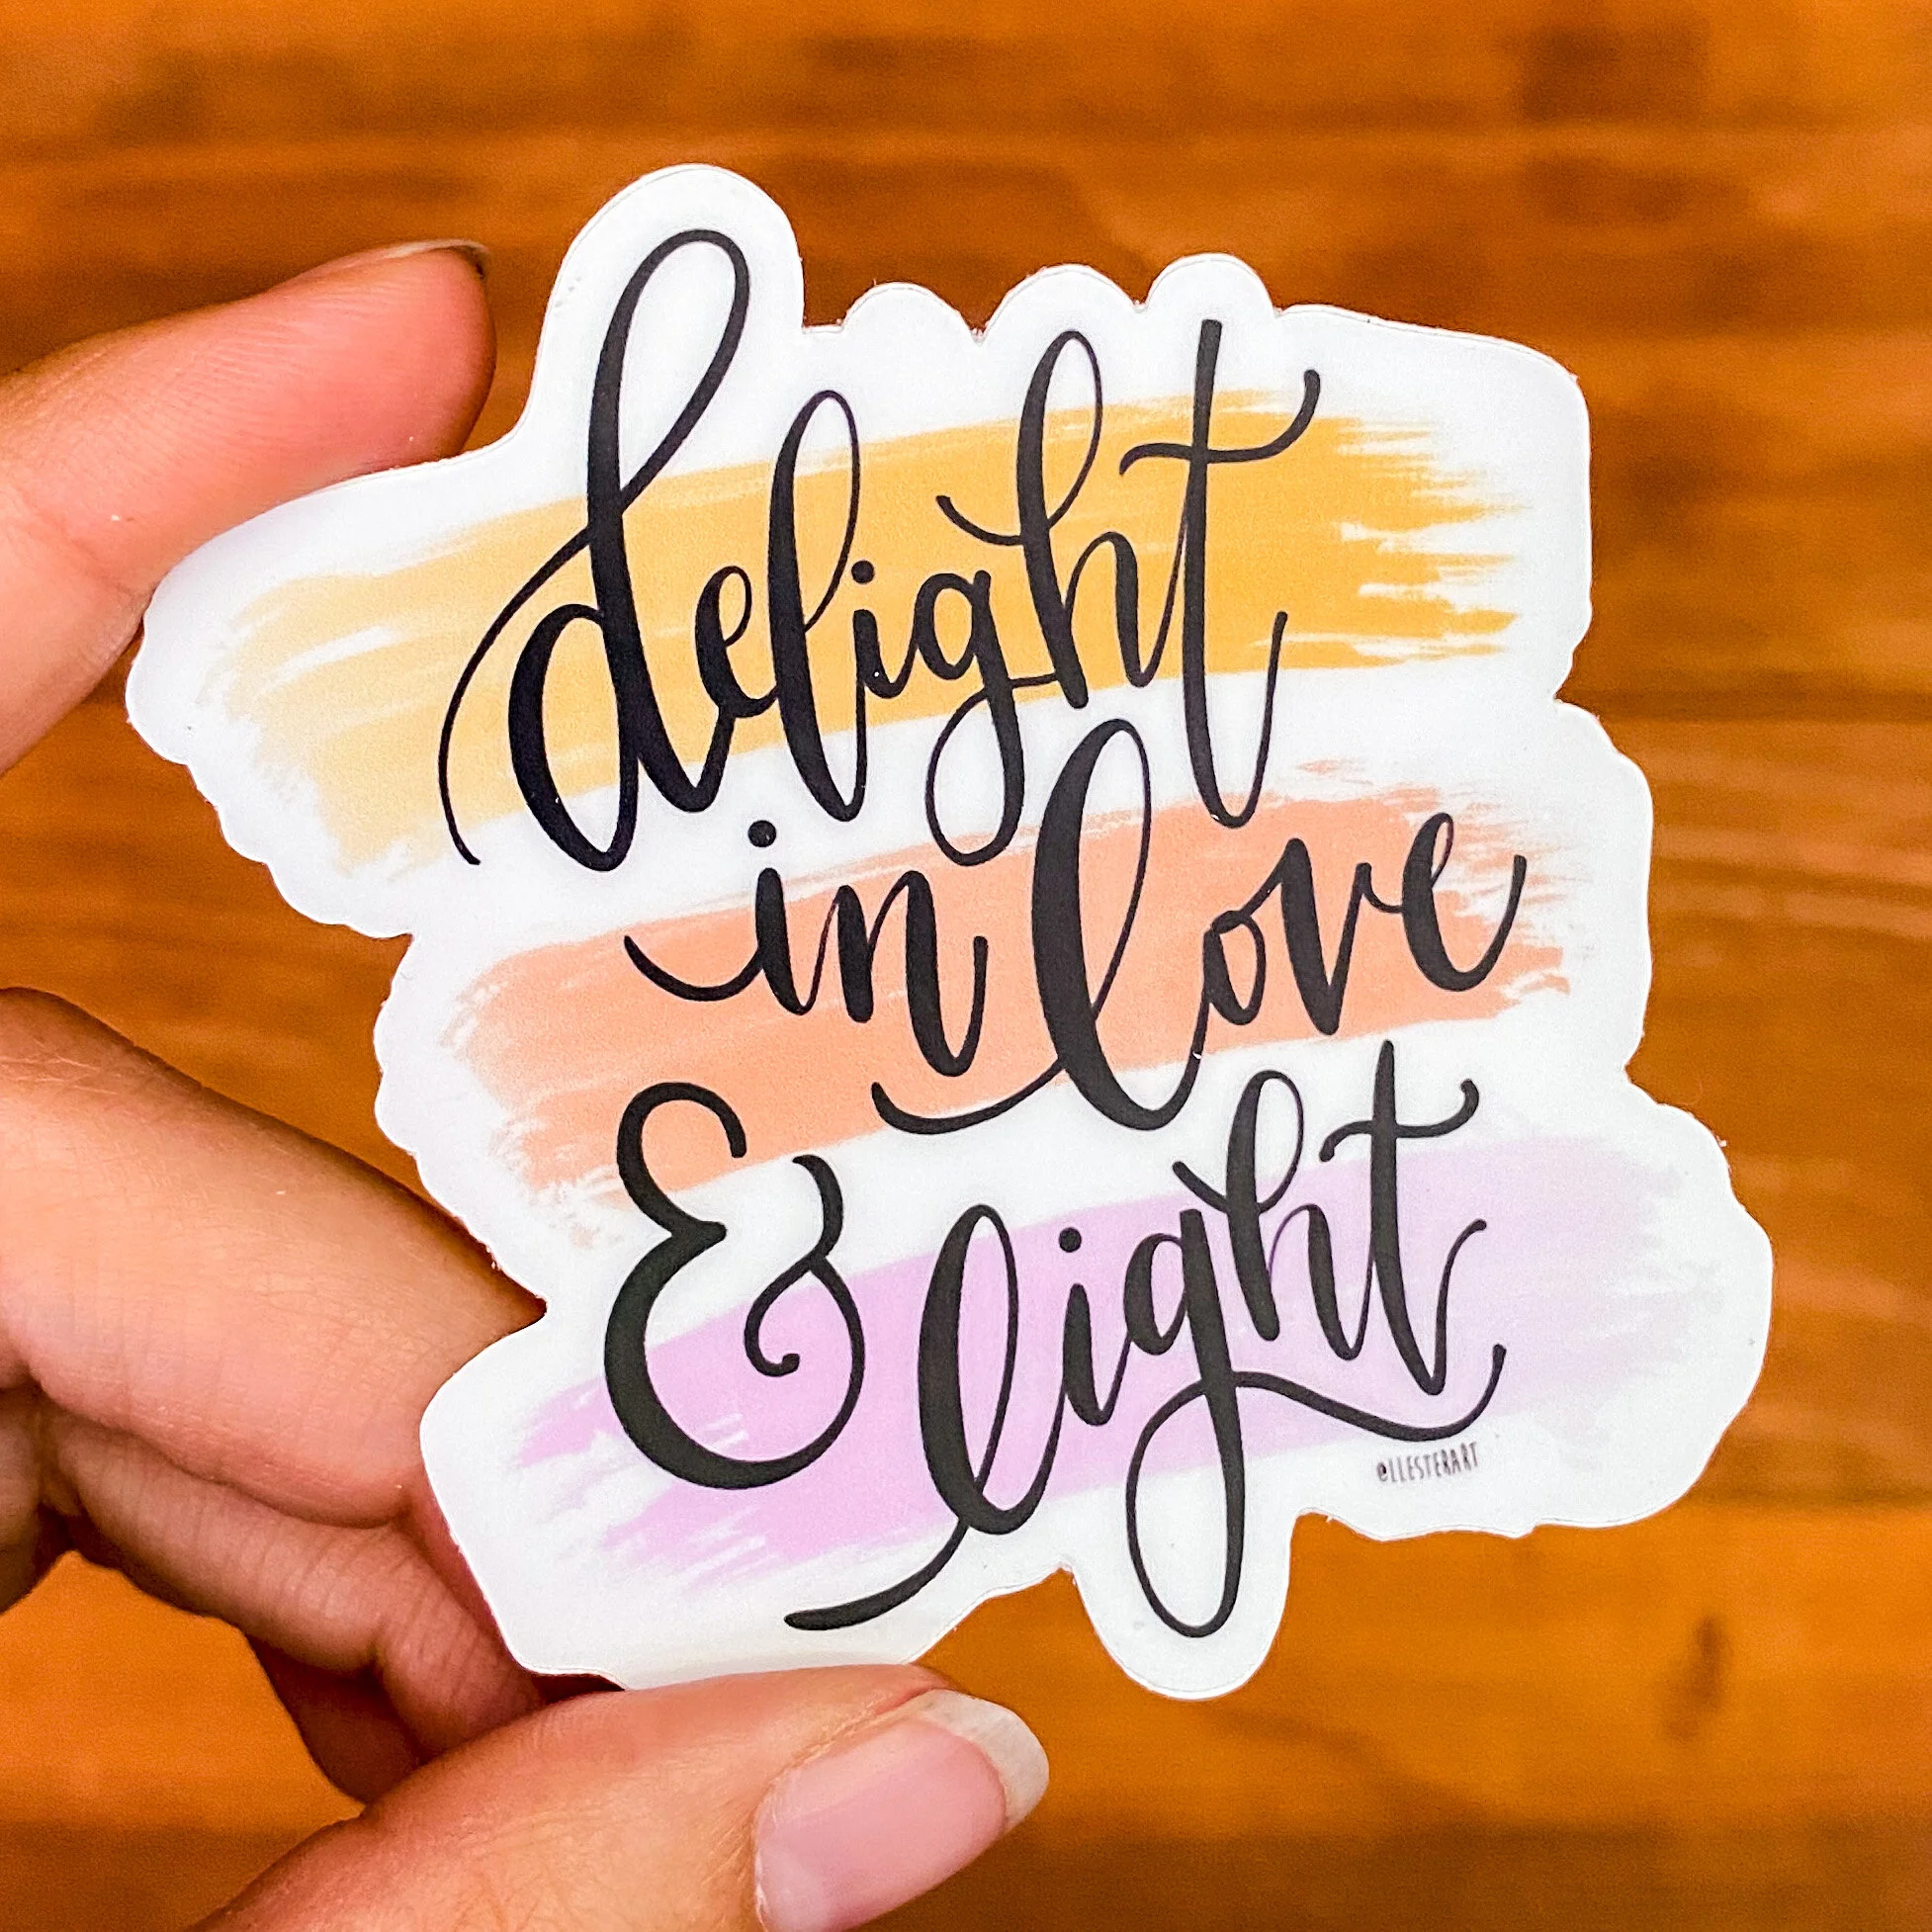 delight
in love
& light
@LLESTERART